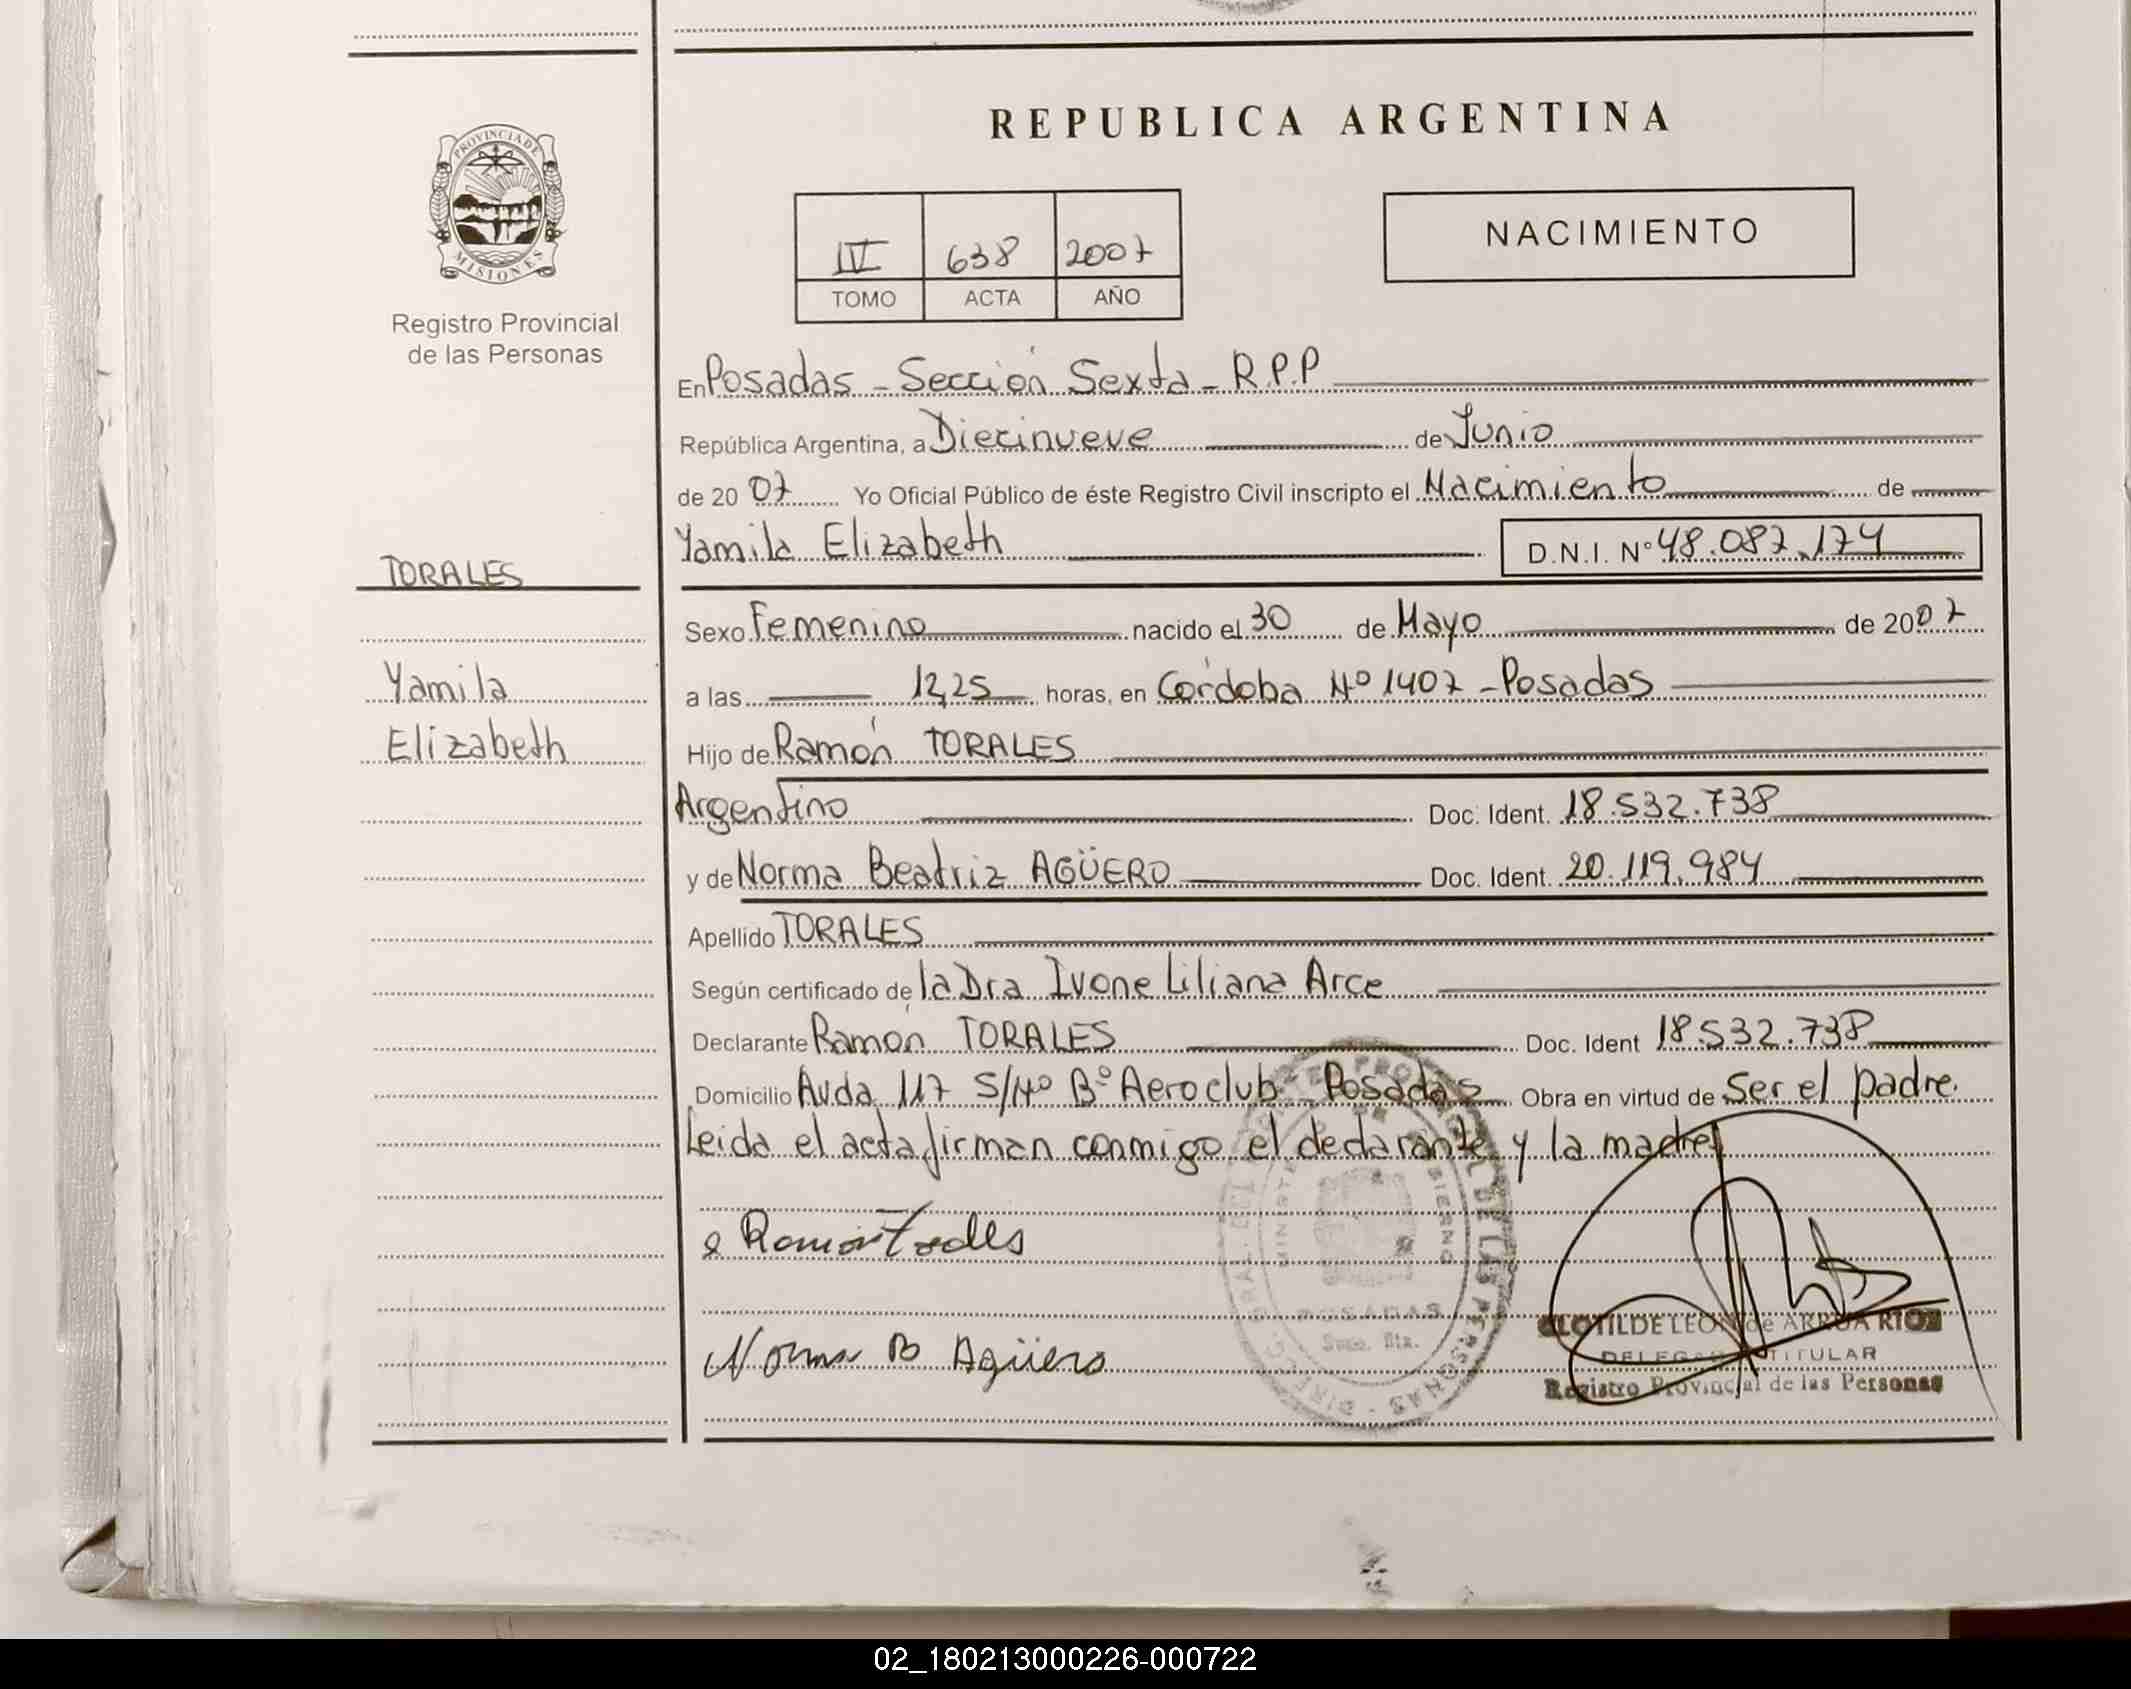 PROVINCIA DE
MISIONES
Registro Provincial
de las Personas
REPUBLICA ARGENTINA
IV 638 2007
TOMO ACTA AÑO
NACIMIENTO
En Posadas - Sección Sexta - R.P.P
República Argentina, a Diecinueve de Junio
de 20 07 Yo Oficial Público de éste Registro Civil inscripto el Nacimiento de
Yamila Elizabeth D.N.I. Nº 48.087.174
TORALES
Yamila
Elizabeth
Sexo Femenino nacido el 30 de Mayo de 2007
a las 12,25 horas, en Córdoba Nº 1407 - Posadas
Hijo de Ramón TORALES
Argentino Doc. Ident. 18.532.738
y de Norma Beatriz AGÜERO Doc. Ident. 20.119.984
Apellido TORALES
Según certificado de la Dra Ivone Liliana Arce
Declarante Ramón TORALES Doc. Ident 18.532.738
Domicilio Avda 117 S/Nº Bº Aeroclub - Posadas Obra en virtud de Ser el padre.
Leida el acta firman conmigo el declarante y la madre
Ramón Torales
Norma B Agüero
POSADAS
CLOTILDE LEON de ARRUA RIOS
DELEGADA TITULAR
Registro Provincial de las Personas
02_180213000226-000722